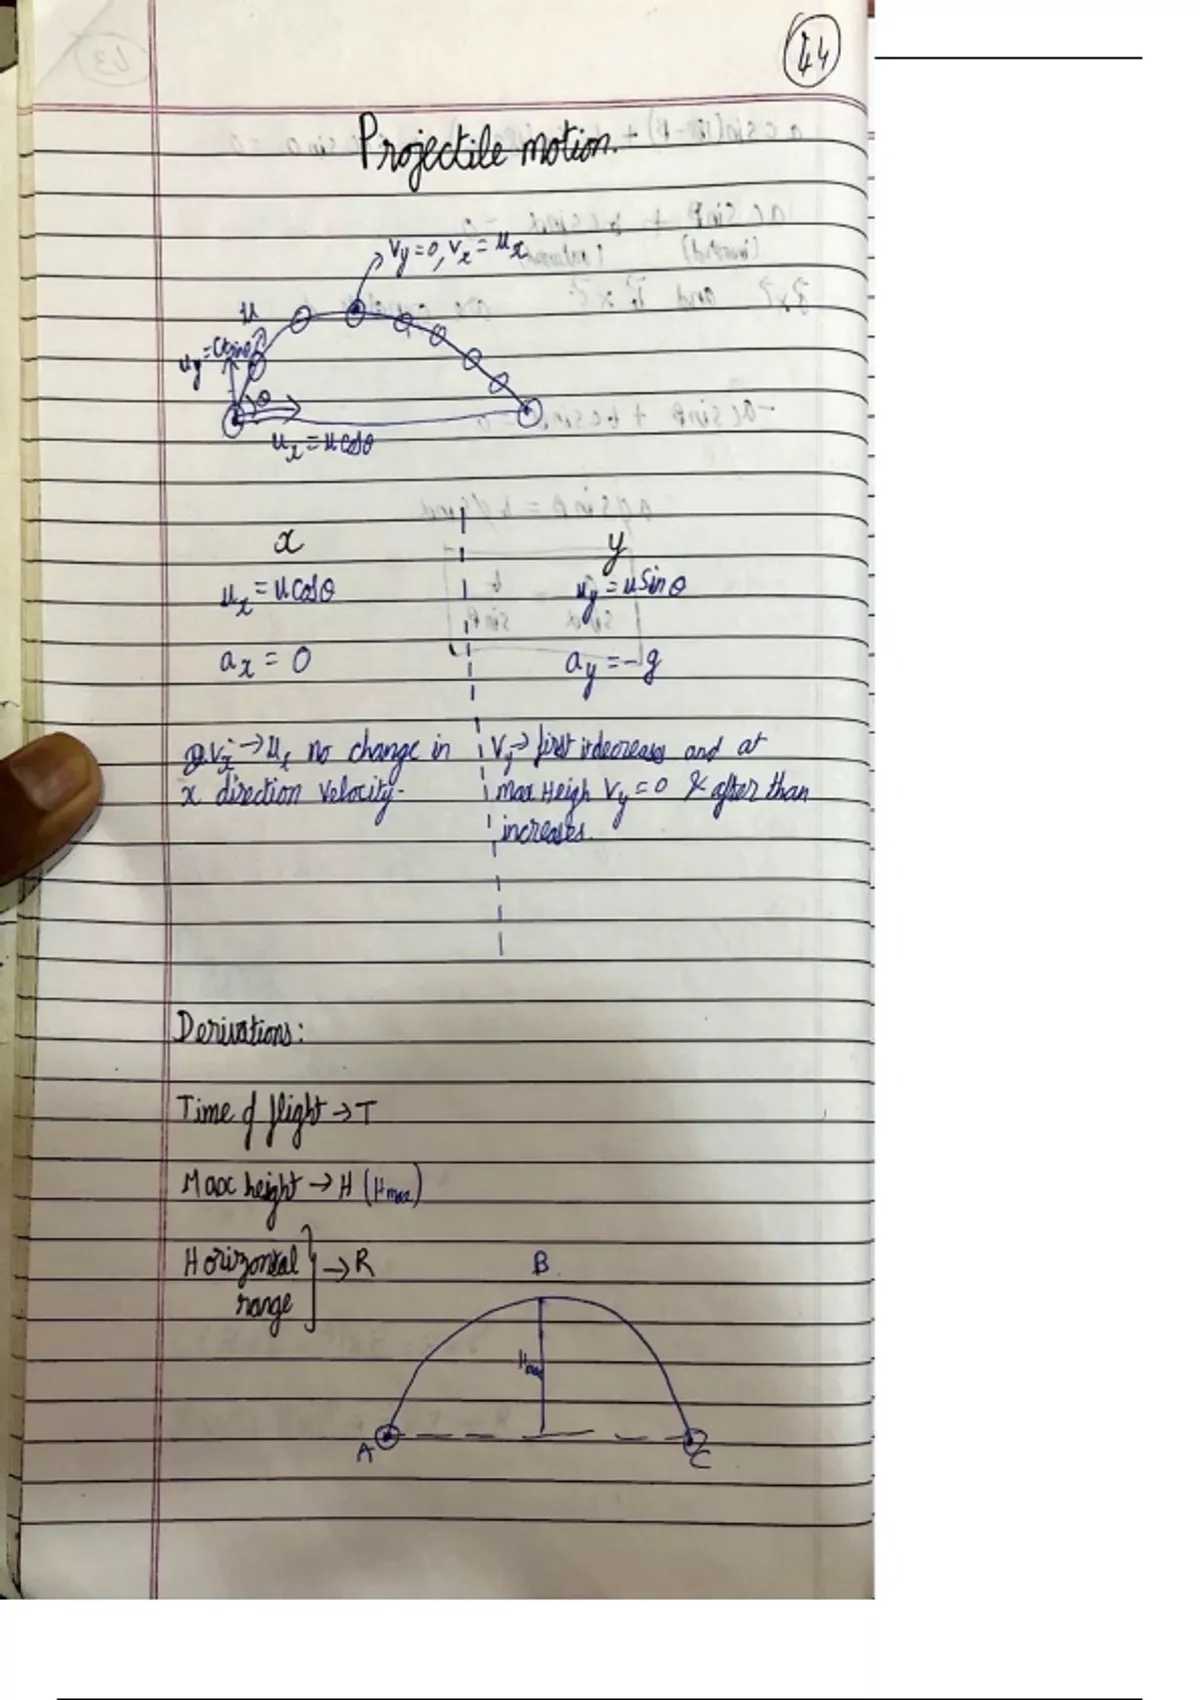 44
Projectile motion.
Vy = 0, Vx = ux
u
uy = usinθ
θ
ux = ucosθ
x y
ux = ucosθ uy = usinθ
ax = 0 ay = -g
Vx → ux no change in
x direction velocity.
Vy → first it decreases and at
max Heigh Vy = 0 & after than
increases.
Derivations:
Time of flight → T
Max height → H (Hmax)
Horizontal
range → R
B
Hmax
A C